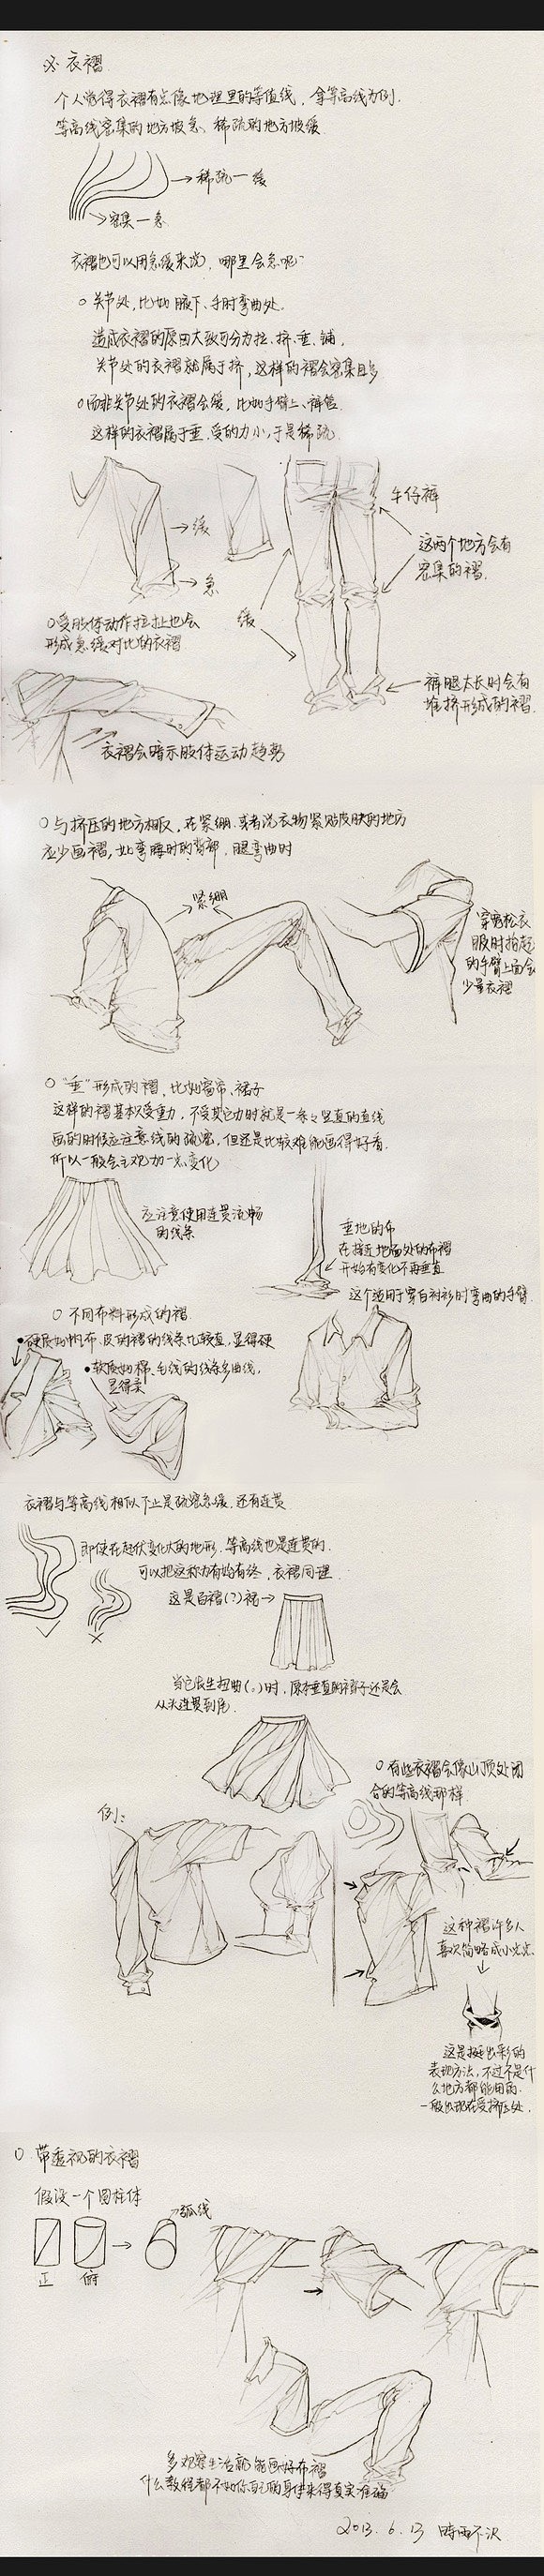 ※ 衣褶
个人觉得衣褶有点像地理里的等值线，拿等高线为例.
等高线密集的地方坡急、稀疏的地方坡缓
→稀疏一缓
→密集一急
衣褶也可以用急缓来说，哪里会急呢~
○ 关节处，比如腋下、手肘弯曲处.
造成衣褶的原因大致可分为拉、挤、垂、铺，
关节处的衣褶就属于挤，这样的褶会密集且多
○而非关节处的衣褶会缓，比如手臂上、裤管
这样的衣褶属于垂.受的力小，于是稀疏
牛仔裤
→缓
→急
这两个地方会有
密集的褶.
缓
○受肢体动作拉扯也会
形成急缓对比的衣褶
裤腿太长时会有
堆挤形成的褶.
衣褶会暗示肢体运动趋势
○与挤压的地方相反，在紧绷.或者说衣物紧贴皮肤的地方
应少画褶，比弯腰时的背部，腿弯曲时
紧绷
穿宽松衣
服时抬起
的手臂上面会
少量衣褶
○"垂"形成的褶，比如窗帘、裙子
这样的褶基本只受重力，不受其它力时就是一条々竖直的直线
画的时候应注意线的疏密，但还是比较难能画得好看.
所以一般会主观加一点变化
应注意使用连贯流畅
的线条
垂地的布
在接近地面处的布褶
开始有变化不再垂直
这个适用于穿白衬衫时弯曲的手臂
○ 不同布料形成的褶
•硬质如帆布、皮的褶的线条比较直，显得硬
•软质如棉、毛线的线条多曲线，
显得柔
衣褶与等高线相似下止是疏密急缓，还有连贯
即使在起伏变化大的地形，等高线也是连贯的.
可以把这称为有始有终，衣褶同理
这是百褶(?)裙→
当它发生扭曲(。)时，原本垂直的裙子还是会
从头连贯到尾.
○ 有些衣褶会像山顶处闭
合的等高线那样
例：
这种褶许多人
喜欢简略成小尖尖.
这是挺出彩的
表现方法，不过不是什
么地方都能用的.
一般出现在受挤压处.
○ 带透视的衣褶
假设一个圆柱体
弧线
正 俯
多观察生活就能画好布褶
什么教程都不如你自己的身体来得真实准确
2013.6.13 時雨不沢